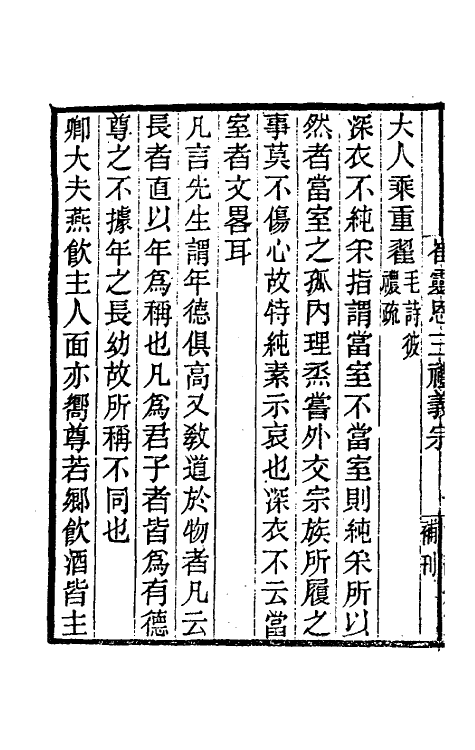 崔靈恩三禮義宗
補刊
大人乘重翟毛詩彼禮疏
深衣不純采指謂當室不當室則純采所以
然者當室之孤内理烝嘗外交宗族所履之
事莫不傷心故特純素示哀也深衣不云當
室者文畧耳
凡言先生謂年德俱高又敎道於物者凡云
長者直以年爲稱也凡爲君子者皆爲有德
尊之不據年之長幼故所稱不同也
卿大夫燕飲主人面亦嚮尊若鄉飲酒皆主